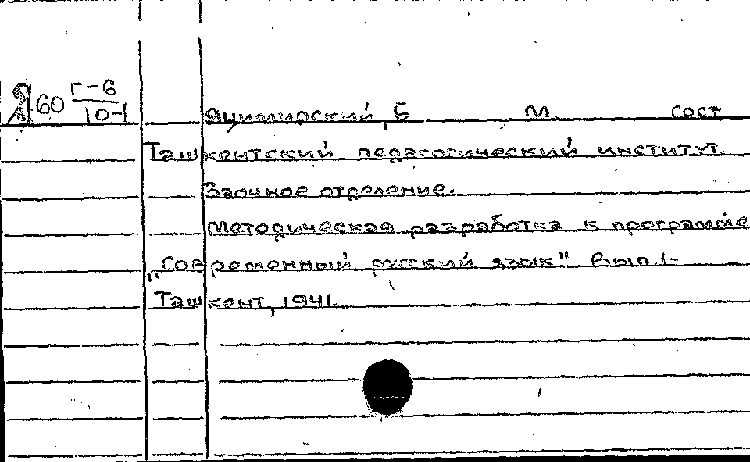 Я60 Г-6
10-1
Яцимирский, Б М. сост
Ташкентский педагогический институт.
Заочное отделение.
Методическая разработка к программе
„Современный русский язык" Вып. 1-
Ташкент, 1941.